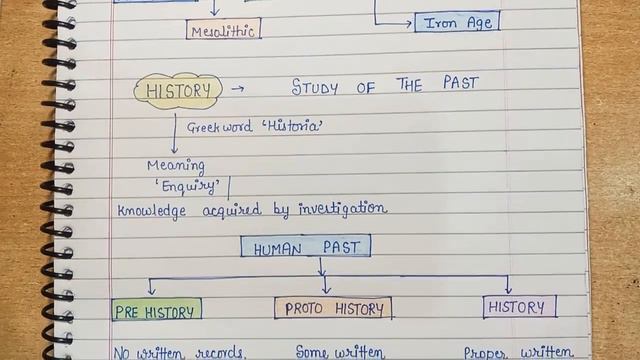 Mesolithic
Iron Age
HISTORY → STUDY OF THE PAST
Greek word 'Historia'
Meaning
'Enquiry'
Knowledge acquired by investigation
HUMAN PAST
PRE HISTORY PROTO HISTORY HISTORY
No written records. Some written Proper written